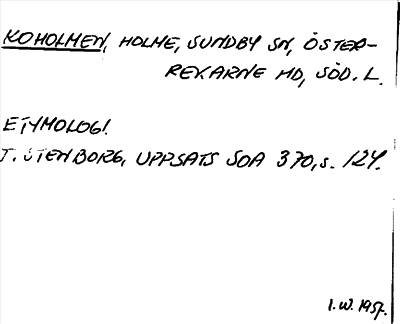 KOHOLMEN, HOLME, SUNDBY SN, ÖSTER-
REKARNE HD, SÖD. L.
ETYMOLOGI.
T. STENBORG, UPPSATS SOA 370, s. 124.
I.W. 1957.